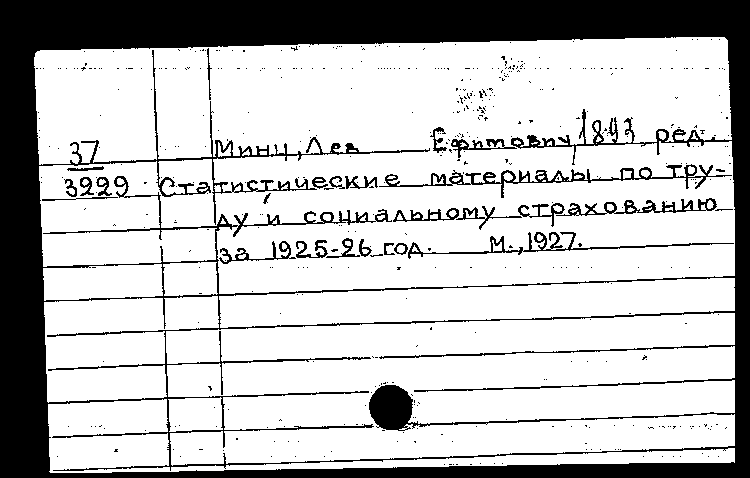 37 Минц, Лев Ефимович, 1893 ред.
3229 Статистические материалы по тру-
ду и социальному страхованию
за 1925-26 год. М., 1927.